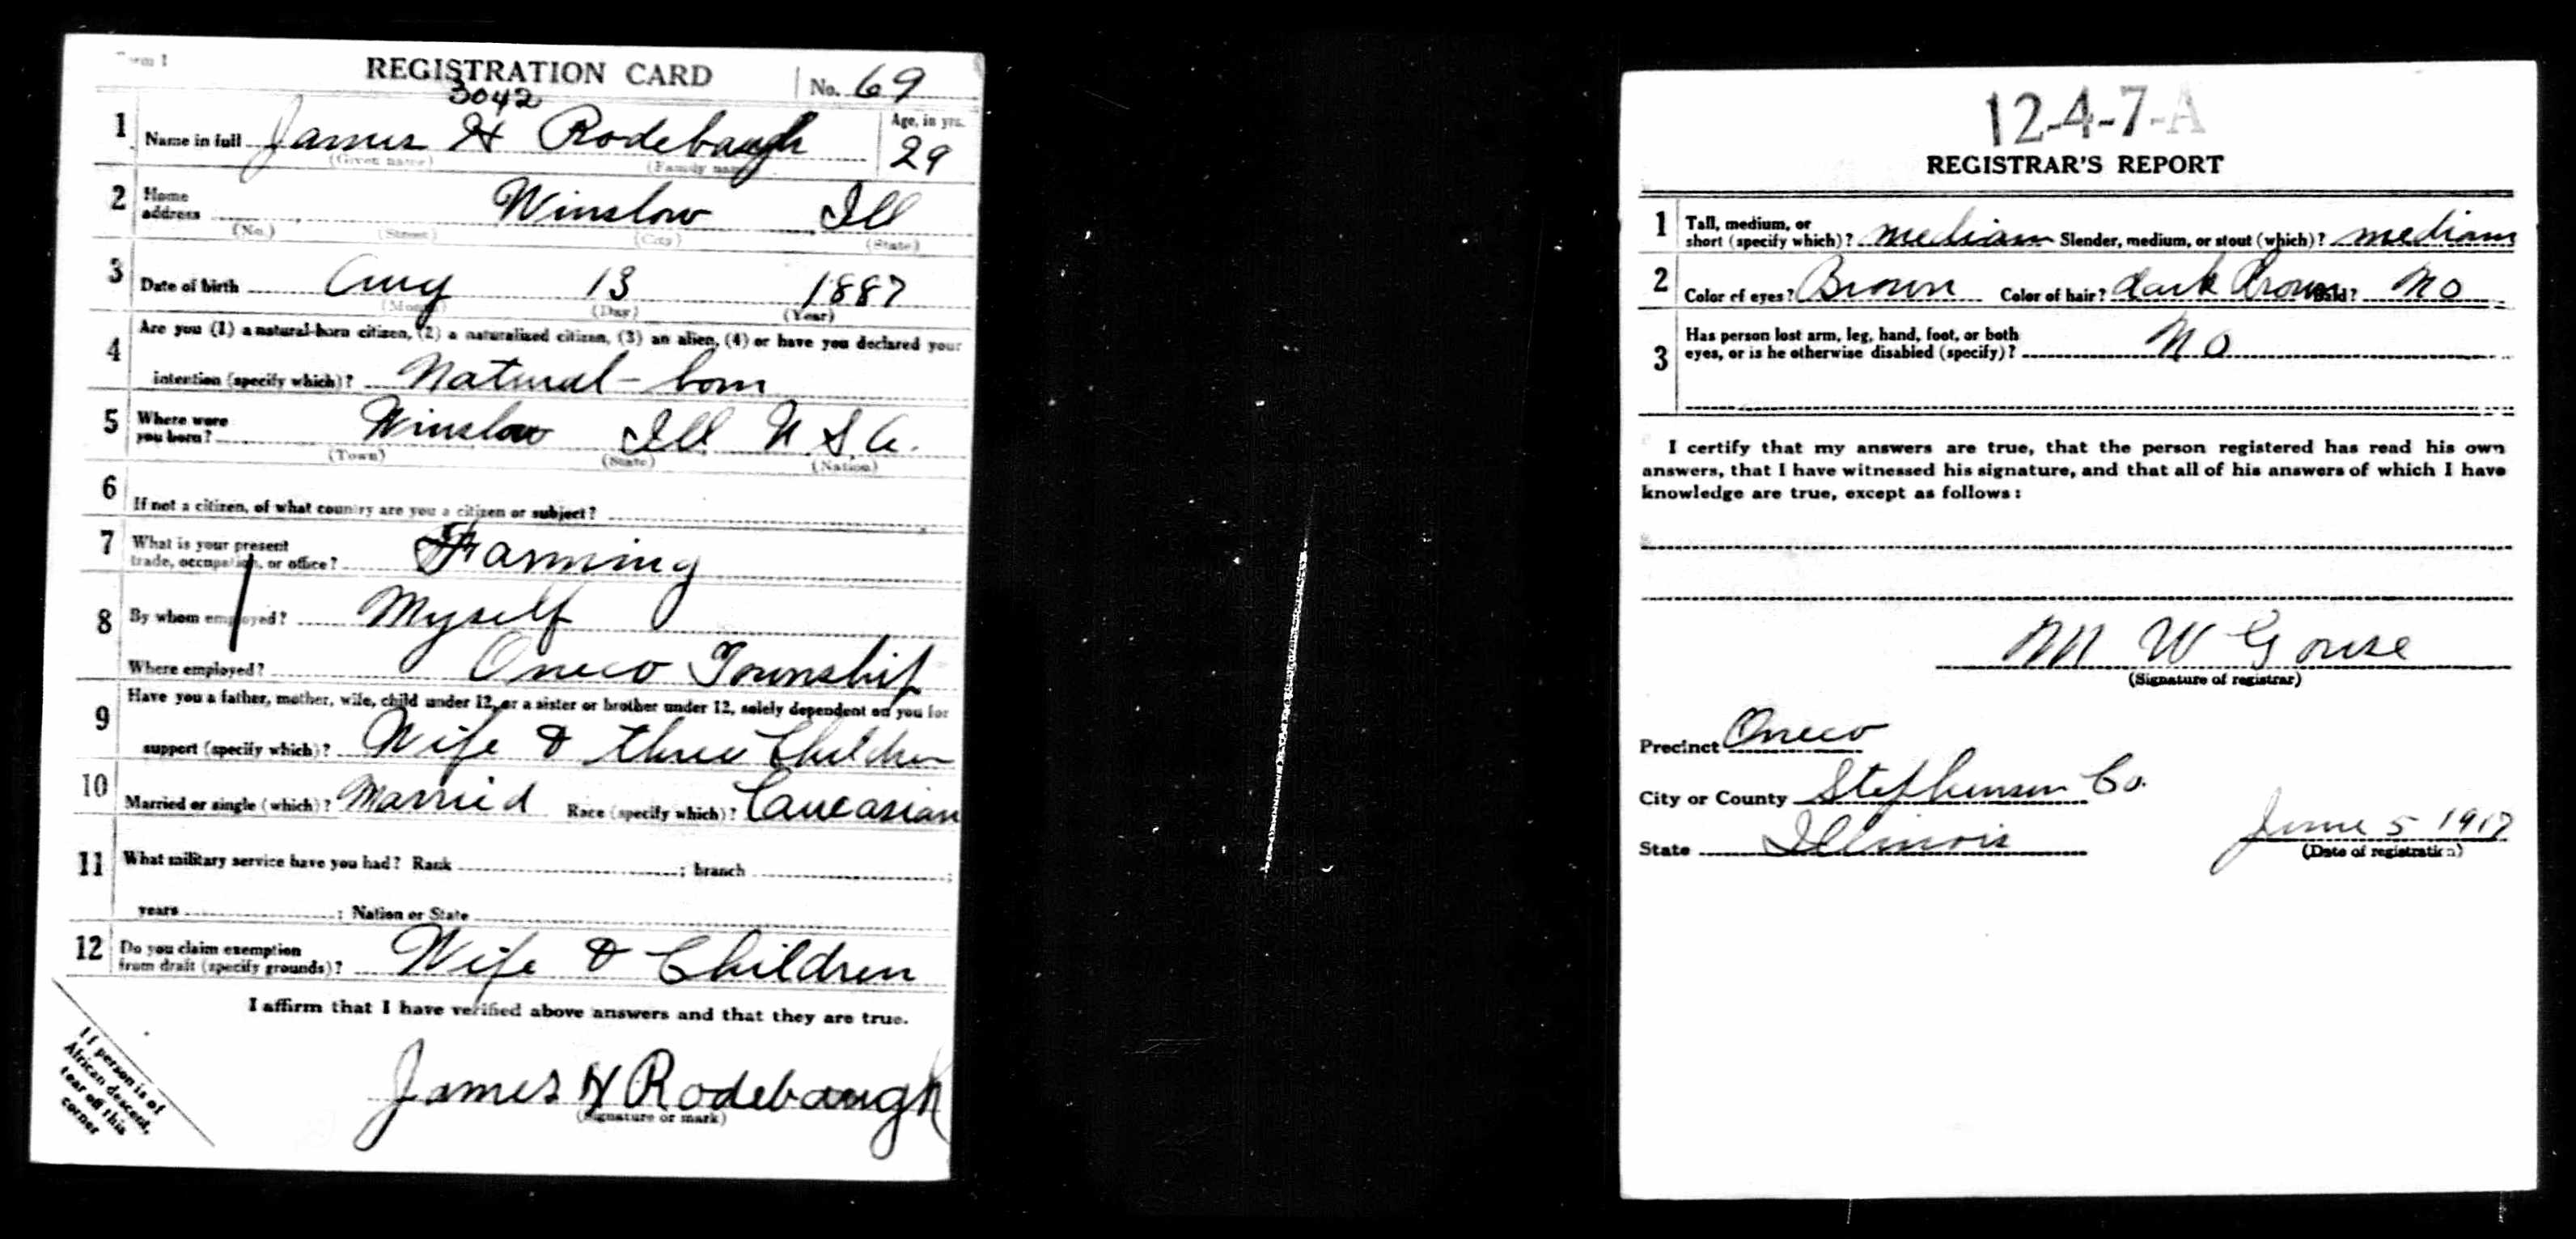 Form 1
REGISTRATION CARD No. 69
3042
1 Name in full James H Rodebaugh Age, in yrs. 29
(Given name) (Family name)
2 Home address Winslow Ill
(No.) (Street) (City) (State)
3 Date of birth Aug 13 1887
(Month) (Day) (Year)
4 Are you (1) a natural-born citizen, (2) a naturalized citizen, (3) an alien, (4) or have you declared your
intention (specify which)? Natural-born
5 Where were you born? Winslow Ill U.S.A.
(Town) (State) (Nation)
6 If not a citizen, of what country are you a citizen or subject?
7 What is your present trade, occupation, or office? Farming
8 By whom employed? Myself
Where employed? Oneco Township
9 Have you a father, mother, wife, child under 12, or a sister or brother under 12, solely dependent on you for
support (specify which)? Wife & three Children
10 Married or single (which)? Married Race (specify which)? Caucasian
11 What military service have you had? Rank ; branch ;
years ; Nation or State
12 Do you claim exemption from draft (specify grounds)? Wife & Children
I affirm that I have verified above answers and that they are true.
James H Rodebaugh
(Signature or mark)
If person is of
African descent,
tear off this
corner
12-4-7-A
REGISTRAR'S REPORT
1 Tall, medium, or short (specify which)? medium Slender, medium, or stout (which)? medium
2 Color of eyes? Brown Color of hair? dark brown Bald? No
3 Has person lost arm, leg, hand, foot, or both
eyes, or is he otherwise disabled (specify)? No
I certify that my answers are true, that the person registered has read his own
answers, that I have witnessed his signature, and that all of his answers of which I have
knowledge are true, except as follows:
M W Gouse
(Signature of registrar)
Precinct Oneco
City or County Stephenson Co.
State Illinois June 5 1917
(Date of registration)